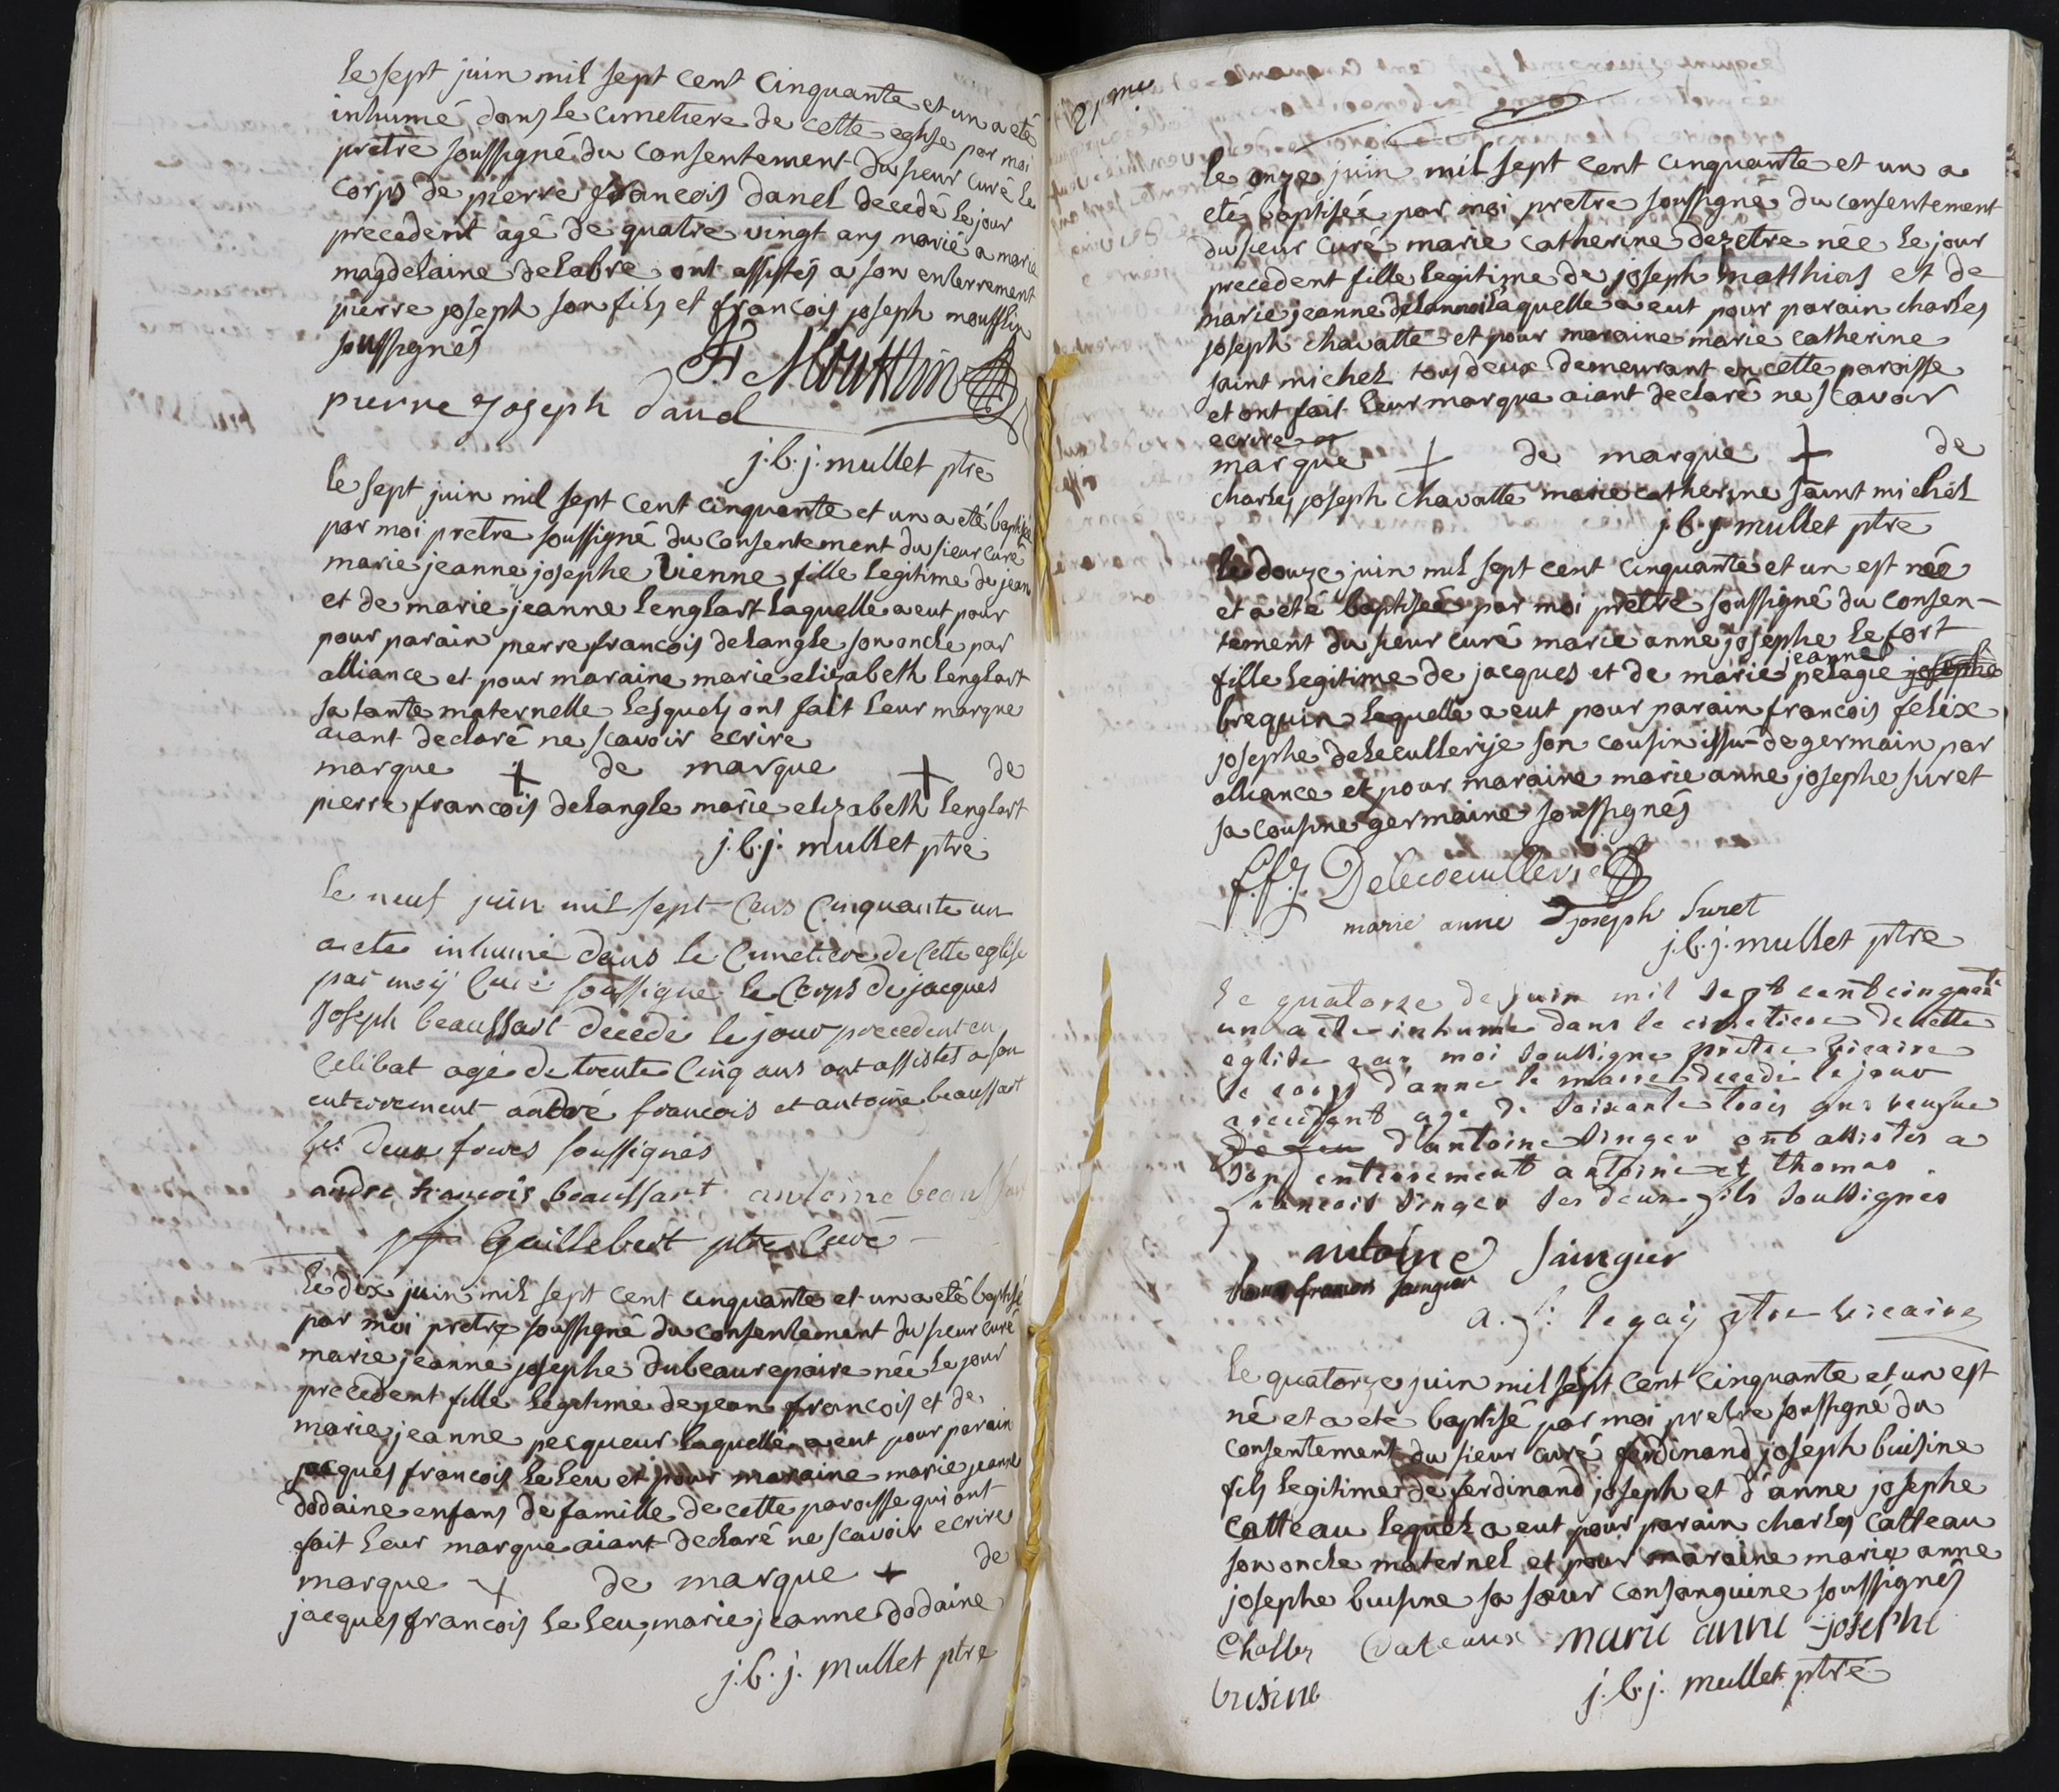 le sept juin mil sept cent cinquante et un a eté
inhumé dans le cimetiere de cette eglise par moi
pretre soussigné du consentement du sieur curé le
corps de pierre francois danel decedé le jour
precedent agé de quatre vingt ans marié a marie
magdelaine delabre ont assistés a son enterrement
pierre joseph son fils et francois joseph moufflin
soussignés
Moufflin
pierre joseph danel
j. b. j. mullet ptre
le sept juin mil sept cent cinquante et un a eté baptisée
par moi pretre soussigné du consentement du sieur curé
marie jeanne josephe vienne fille legitime de jean
et de marie jeanne lenglart laquelle a eut pour
pour parain pierre francois delangle son oncle par
alliance et pour maraine marie elizabeth lenglart
sa tante maternelle lesquels ont fait leur marque
aiant declaré ne scavoir ecrire
marque + de marque + de
pierre francois delangle marie elizabeth lenglart
j. b. j. mullet ptre
le neuf juin mil sept cens cinquante un
a eté inhumé dans le cimetiere de cette eglise
par moy curé soussigné le corps de jacques
Joseph beaussart decedé le jour precedent en
celibat agé de trente cinq ans ont assistés a son
enterrement andré francois et antoine beaussart
ses deux freres soussignés
andre francois beaussart antoine beaussart
Guillebert ptre curé
le dix juin mil sept cent cinquante et un a eté baptisé
par moi pretre soussigné du consentement du sieur curé
marie jeanne josephe dubeaurepaire née le jour
precedent fille legitime de jean francois et de
marie jeanne pecqueur laquelle a eut pour parain
jacques francois le leu et pour maraine marie jeanne
dodaine enfans de famille de cette paroisse qui ont
fait leur marque aiant declaré ne scavoir ecrire
marque + de marque + de
jacques francois le leu, marie jeanne dodaine
j. b. j. mullet ptre
21me
le onze juin mil sept cent cinquante et un a
eté baptisée par moi pretre soussigné du consentement
du sieur curé marie catherine dezetre née le jour
precedent fille legitime de joseph matthias et de
marie jeanne delannoi laquelle a eut pour parain charles
joseph chavatte et pour maraine marie catherine
saint michel tous deux demeurant en cette paroisse
et ont fait leur marque aiant declaré ne scavoir
ecrire
marque + de marque + de
charles joseph chavatte marie catherine saint michel
j. b. j. mullet ptre
le douze juin mil sept cent cinquante et un est née
et a eté baptisée par moi pretre soussigné du consen-
tement du sieur curé marie anne josephe le fort
fille legitime de jacques et de marie jeanne pelagie josephe
brequin laquelle a eut pour parain francois felix
josephe delecullerije son cousin issu de germain par
alliance et pour maraine marie anne josephe suret
sa cousine germaine soussignés
f. f. J. Delecoeuillerie
marie anne Joseph Suret
j. b. j. mullet ptre
le quatorze de juin mil sept cent cinquante
un a eté inhumé dans le cimetiere de cette
eglise par moi soussigné pretre vicaire
le corps d'anne le maire decedé le jour
precedent agé de soixante trois ans veufue
de feu d'antoine singer ont assistés a
son enterrement antoine et thomas
francois singer ses deux fils soussignés
antoine Saingier
thomas francois saingier
a. f. le gaÿ ptre vicaire
le quatorze juin mil sept cent cinquante et un est
né et a eté baptisé par moi pretre soussigné du
consentement du sieur curé ferdinand joseph buisine
fils legitime de ferdinand joseph et d'anne josephe
catteau lequel a eut pour parain charles catteau
son oncle maternel et pour maraine marie anne
josephe buisine sa sœur consanguine soussignés
Challes Cateaux marie anne josephe
buisine
j. b. j. mullet ptre